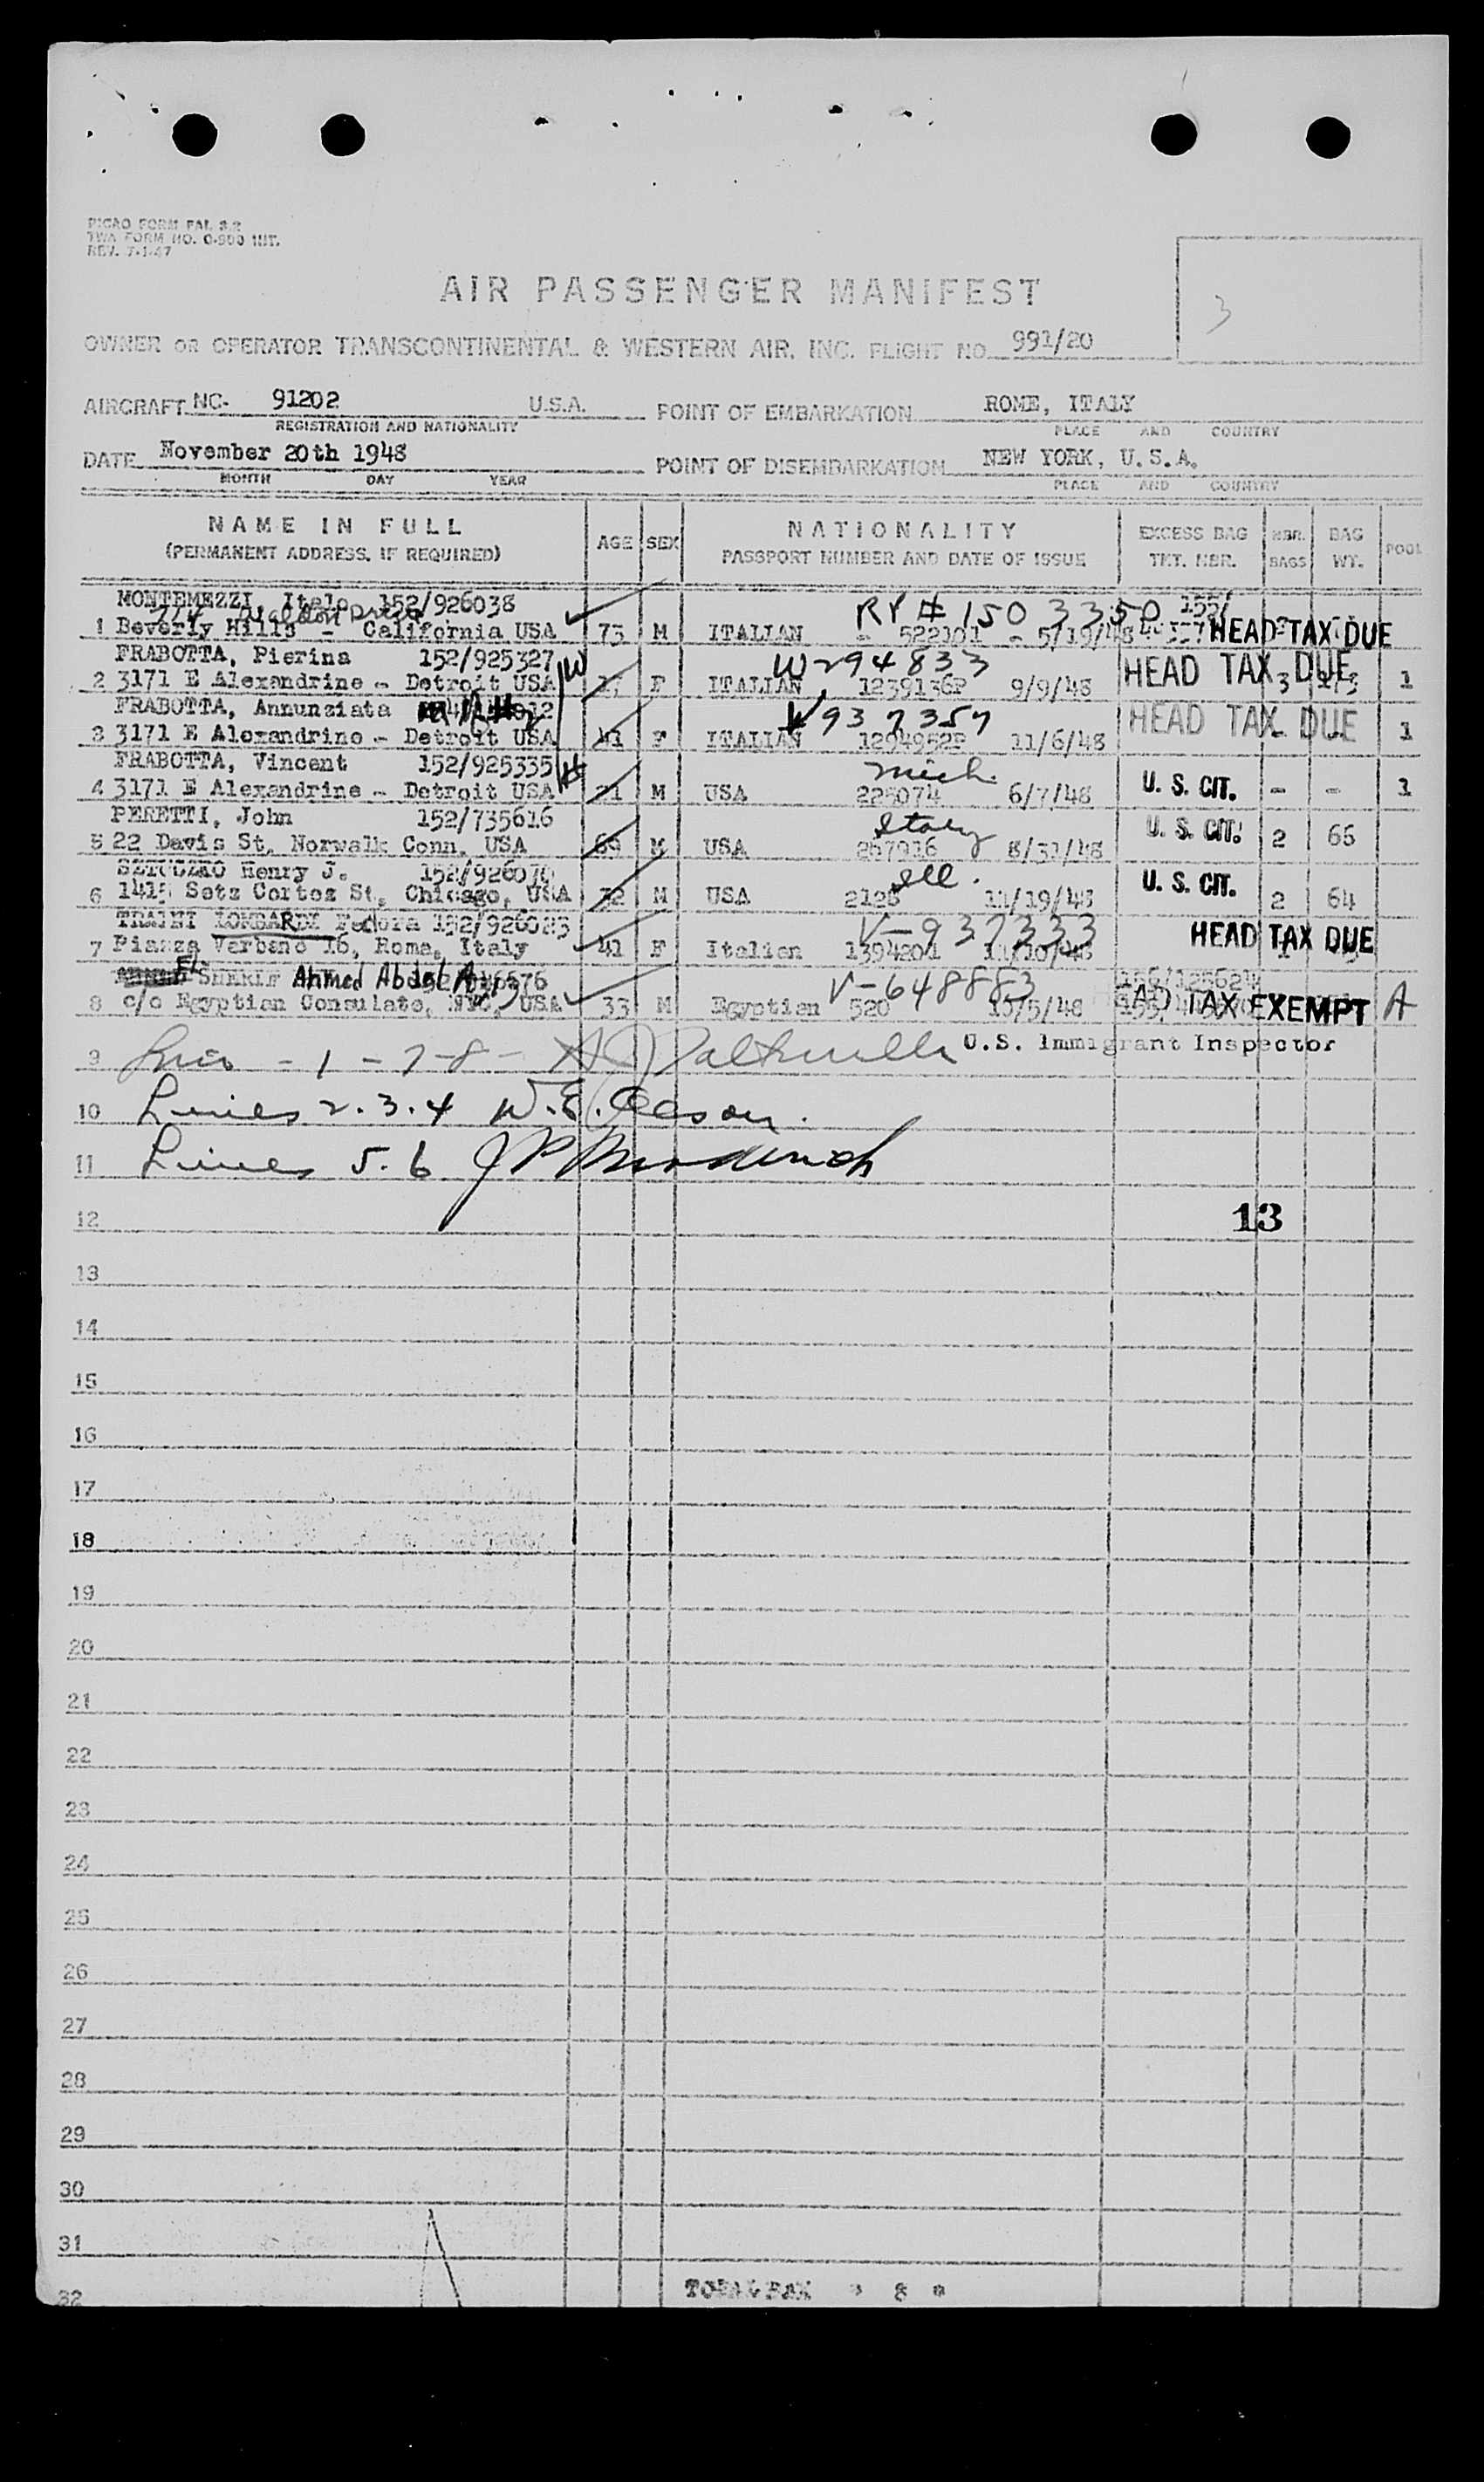 PICAO FORM FAL 3.2
TWA FORM NO. 0-900 INT.
REV. 7-1-47
3
AIR PASSENGER MANIFEST
OWNER OR OPERATOR TRANSCONTINENTAL & WESTERN AIR, INC. FLIGHT NO. 991/20
AIRCRAFT NC- 91202 U.S.A. POINT OF EMBARKATION ROME, ITALY
REGISTRATION AND NATIONALITY PLACE AND COUNTRY
DATE November 20th 1948 POINT OF DISEMBARKATION NEW YORK, U.S.A.
MONTH DAY YEAR PLACE AND COUNTRY
NAME IN FULL AGE SEX NATIONALITY EXCESS BAG NBR. BAG POOL
(PERMANENT ADDRESS, IF REQUIRED) PASSPORT NUMBER AND DATE OF ISSUE TKT. NBR. BAGS WT.
MONTEMEZZI, Italo 152/926038 RP # 1503350 155/
1 Beverly Hills - California USA 73 M ITALIAN - 522101 - 5/19/48 HEAD TAX DUE
FRABOTTA, Pierina 152/925327 W W294833
2 3171 E Alexandrine - Detroit USA F ITALIAN 1239136P 9/9/48 HEAD TAX DUE 3 1
FRABOTTA, Annunziata W937357
3 3171 E Alexandrine - Detroit USA 41 F ITALIAN 1294952P 11/6/48 HEAD TAX DUE - 1
FRABOTTA, Vincent 152/925335 H Mich.
4 3171 E Alexandrine - Detroit USA M USA 225074 6/7/48 U. S. CIT. - - 1
PERETTI, John 152/735616 Italy
5 22 Davis St, Norwalk Conn. USA 69 M USA 267916 8/31/48 U. S. CIT. 2 66
Henry J. Ill.
6 1415 Cortez St, Chicago, USA 32 M USA 11/19/48 U. S. CIT. 2 64
TRAINI LOMBARDI Fedora V-937333
7 Piazza Verbano 16, Rome, Italy 41 F Italian 1394204 11/10/48 HEAD TAX DUE
EL SHERIF Ahmed Abdel V-648883
8 c/o Egyptian Consulate, NYC, USA 33 M Egyptian 520 HEAD TAX EXEMPT A
9 - 1 - 7-8 - U.S. Immigrant Inspector
10 Lines 2.3.4 W.E.
11 Lines 5.6 J P
12 13
13
14
15
16
17
18
19
20
21
22
23
24
25
26
27
28
29
30
31
32 TOTAL PAX * 8 *